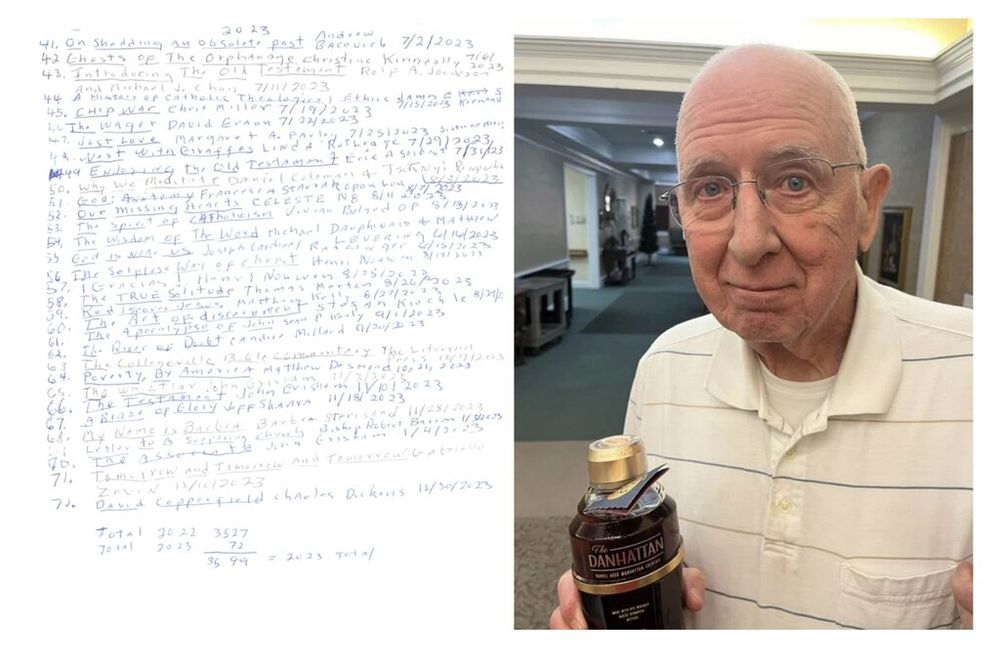 2023
41. On Shedding an Obsolete past Andrew
Bacevich 7/2/2023
42 Ghosts of The Orphanage Christine Kenneally 7/6/
2023
43. Introducing The Old Testament Rolf A. Jacobson
and Michael J. Chan 7/11/2023
44 A History of Catholic Theological Ethics James F
45. CHIP WAR Chris Miller 7/19/2023
The Wager David Grann 7/22/2023
47. Just Love Margaret A. Farley 7/25/2023
48. West With Giraffes Linda Rutledge 7/29/2023
49 the Old Testament Eric A 7/31/23
50. Why We Meditate Daniel Goleman & Tsoknyi Rinpoche
51. God: Anatomy Francesca 8/7/2023
52. Our Missing Hearts CELESTE NG 8/11 2023
53. The Spirit of Catholicism Vivian Boland OP 8/13/2023
54. The Wisdom of The Word Michael Dauphinais & Matthew
LEVERING 2023
55 God is Near Us Joseph Cardinal Ratzinger
56. The Selfless Way of Christ Henri Nouwen 2023
57. Henri Nouwen 8/25/2023
58. The TRUE Solitude Thomas Merton 8/26/2023
59. Rediscover Jesus Matthew 8/27/2023
60. The Art of discernment
61. The Apocalypse of John Sean P Kealy 9/1/2023
62. The River of Doubt Candice Millard 9/20/2023
63 The Collegeville Bible Commentary The
64. Poverty, By America Matthew Desmond 2023
65. The John Grisham 2023
66. The Testament John Grisham 11/10/2023
67. A Blaze of Glory Jeff Shaara 11/18/2023
68. My Name is Barbra Barbra Streisand 11/28/2023
Letter to A Suffering Church Bishop Robert Barron
70. The Associate John Grisham 2023
71. Tomorrow and Tomorrow and Tomorrow Gabrielle
Zevin 12/10/2023
72. David Copperfield Charles Dickens 12/30/2023
Total 2022 3527
Total 2023 72
35 99 = 2023 Total
The
DANHATTAN
BARREL AGED MANHATTAN COCKTAIL
MADE WITH RYE WHISKEY
SWEET VERMOUTH
BITTERS